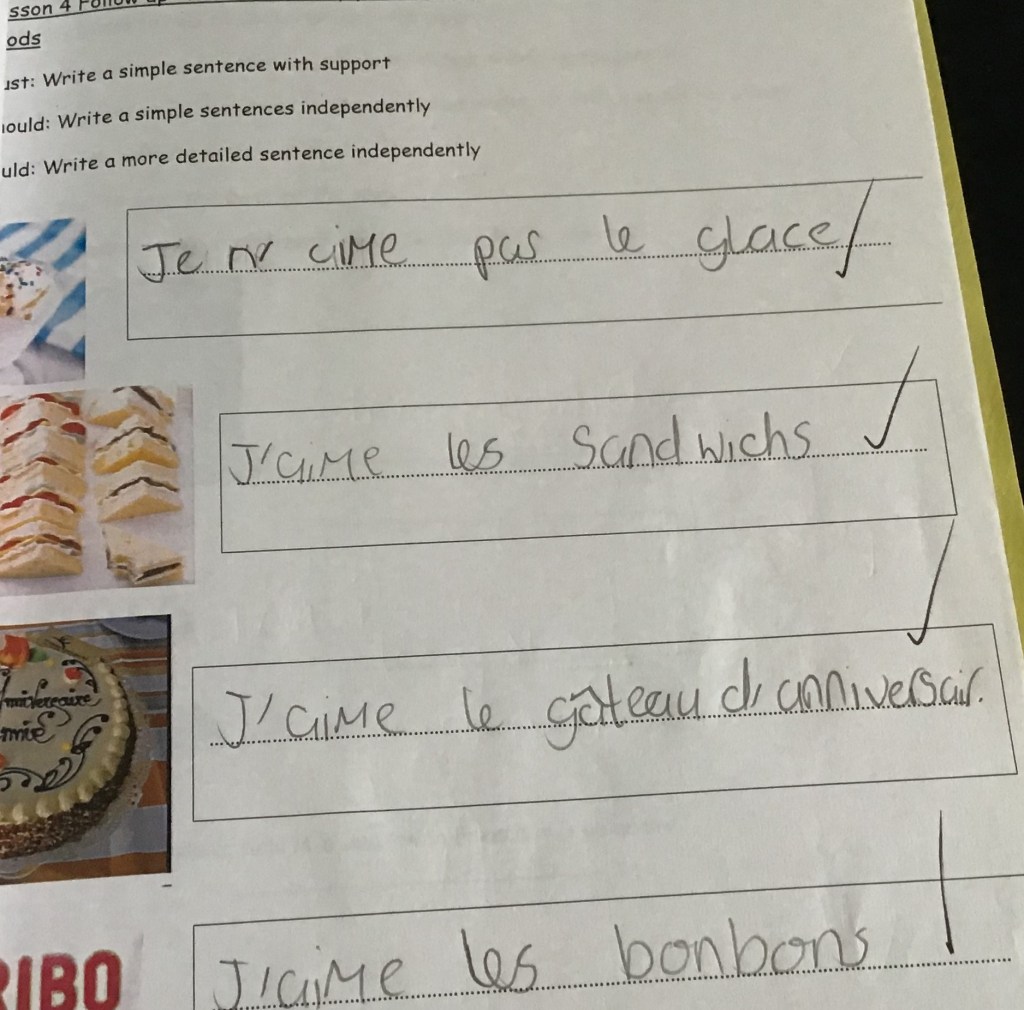 sson 4 Follow up
ods
ust: Write a simple sentence with support
hould: Write a simple sentences independently
uld: Write a more detailed sentence independently
Je n' aime pas le glace
J'aime les Sandwichs
J'aime le gâteau d'anniversair.
mie
RIBO
J'aime les bonbons